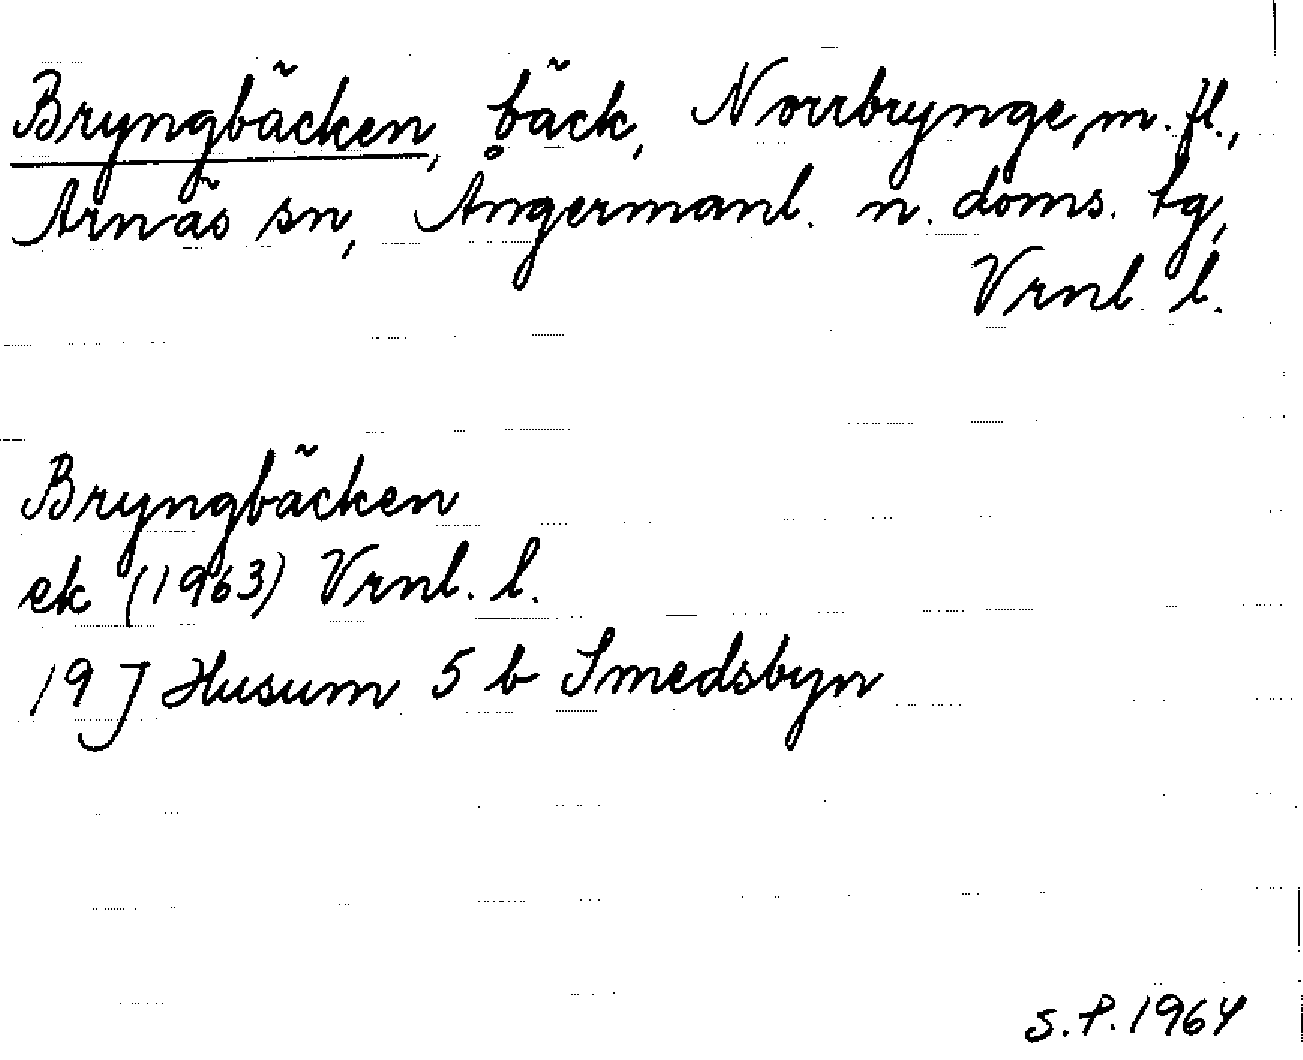 Bryngbäcken, bäck, Norrbrynge, m. fl.,
Arnäs sn, Ångermanl. n. doms. tg,
Vrnl. l.
Bryngbäcken
ek (1963) Vrnl. l.
19 J Husum 5 b Smedsbyn
S.P. 1964